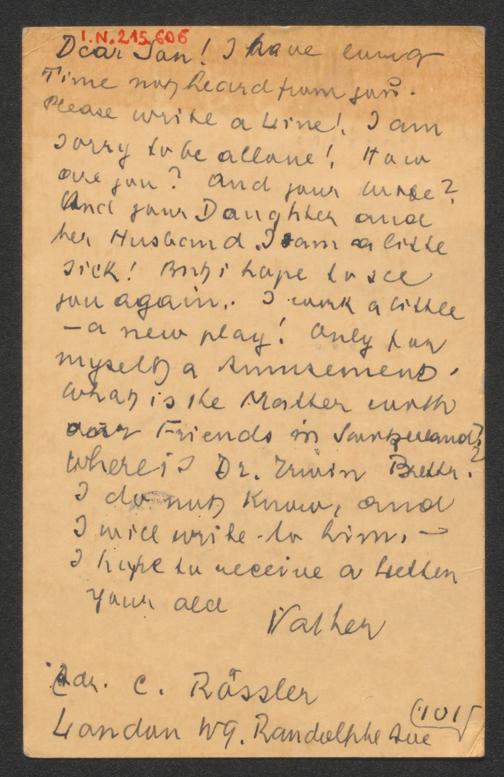 I.N. 215.606
Dear Jan! I have long
Time not heard from you.
Please write a Line! I am
sorry to be allone! How
are you? And your wife?
And your Daughter and
her Husband. I am a little
sick! But i hope to see
you again. I work a little
– a new play! Only for
myself a Amusement.
What is the Matter with
our Friends in
Where is Dr. Erwin
I do not Know, and
I will write to him. –
I hope to receive a Letter
your old
Vather
Adr. C. Rössler
London W9. Randolphe Ave
101